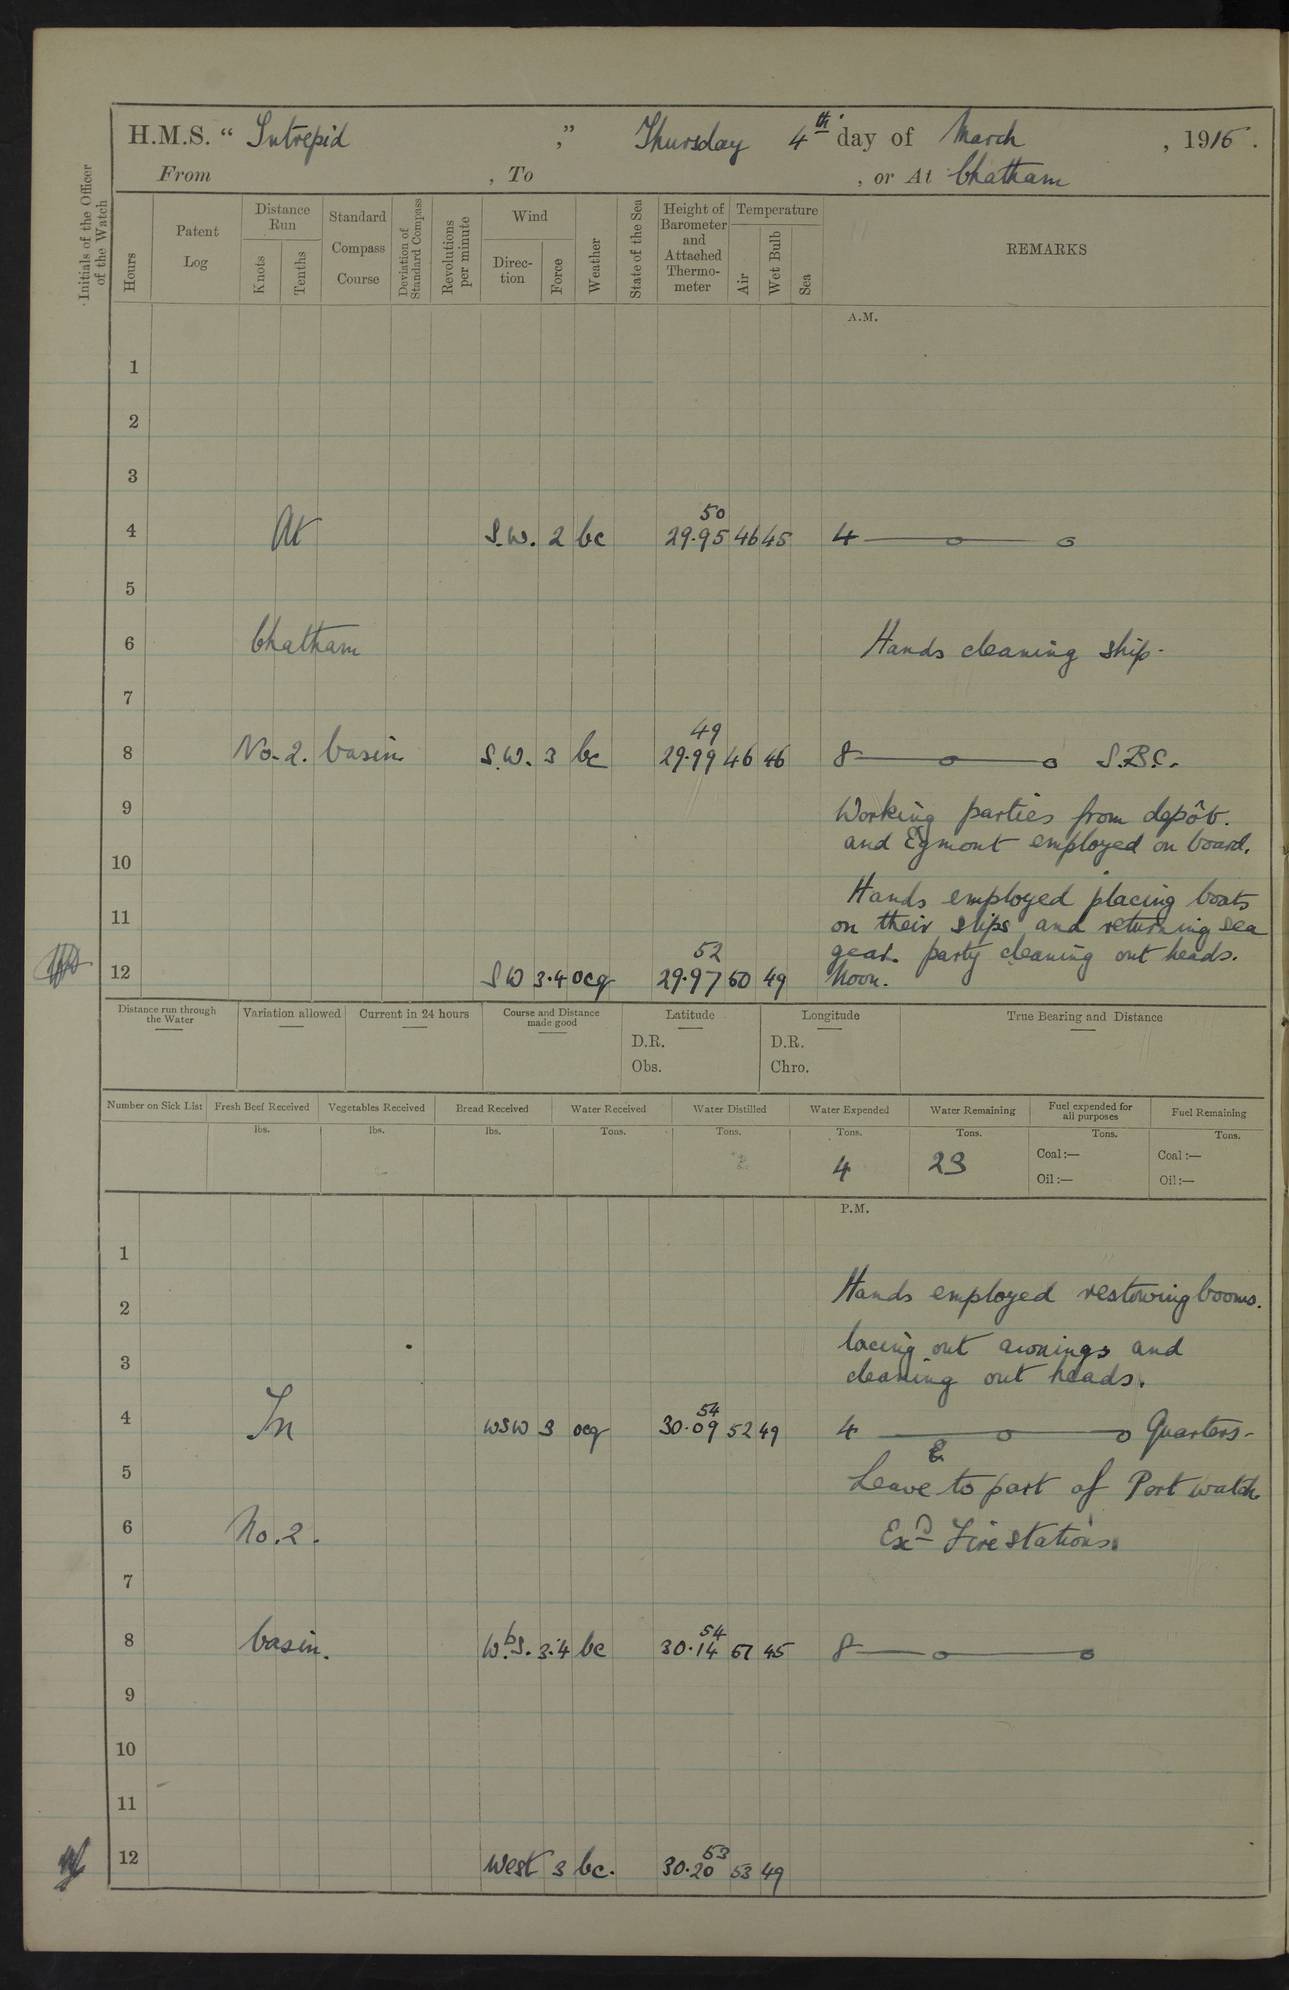 H.M.S. “ Intrepid ,” Thursday 4th day of March , 1915.
From , To , or At Chatham
Initials of the Officer of the Watch
Hours
Patent Log
Distance Run
Knots
Tenths
Standard Compass Course
Deviation of Standard Compass
Revolutions per minute
Wind
Direc-tion
Force
Weather
State of the Sea
Height of Barometer and Attached Thermo-meter
Temperature
Air
Wet Bulb
Sea
REMARKS
A.M.
1
2
3
50
4 At S.W. 2 bc 29.95 46 45 4
5
6 Chatham Hands cleaning ship.
7
49
8 No. 2. basin. S.W. 3 bc 29.99 46 46 8 S.B.C.
9 Working parties from depôt.
and Egmont employed on board.
10
Hands employed placing boats
11 on their slips and returning sea
52 gear. party cleaning out heads.
12 SW 3.4 ocg 29.97 50 49 Noon.
Distance run through the Water
Variation allowed
Current in 24 hours
Course and Distance made good
Latitude
D.R.
Obs.
Longitude
D.R.
Chro.
True Bearing and Distance
Number on Sick List
Fresh Beef Received
lbs.
Vegetables Received
lbs.
Bread Received
lbs.
Water Received
Tons.
Water Distilled
Tons.
Water Expended
Tons.
4
Water Remaining
Tons.
23
Fuel expended for all purposes
Tons.
Coal :—
Oil :—
Fuel Remaining
Tons.
Coal :—
Oil :—
P.M.
1
Hands employed restowing booms.
2
lacing out awnings and
3 cleaning out heads.
54
4 In WSW 3 ocg 30.09 52 49 4 Quarters-
5 Leave to part of Port watch
6 No. 2. Exd Fire stations.
7
54
8 basin. W.bS. 3.4 bc 30.14 51 45 8
9
10
11
53
12 West 3 bc. 30.20 53 49